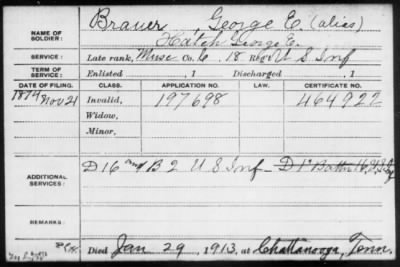 NAME OF SOLDIER: Brauer, George E. (alias)
Hatch George E.
SERVICE: Late rank, Musc Co. C, 18 Reg't U S Inf
TERM OF SERVICE: Enlisted , 1 Discharged , 1
DATE OF FILING. CLASS. APPLICATION NO. LAW. CERTIFICATE NO.
1874 Nov 21 Invalid, 197698 464922
Widow,
Minor,
ADDITIONAL SERVICES: D 16 and B 2 U S Inf D 1" Battn 16 U.S. Inf
REMARKS:
Died Jan 29, 1913, at Chattanooga, Tenn.